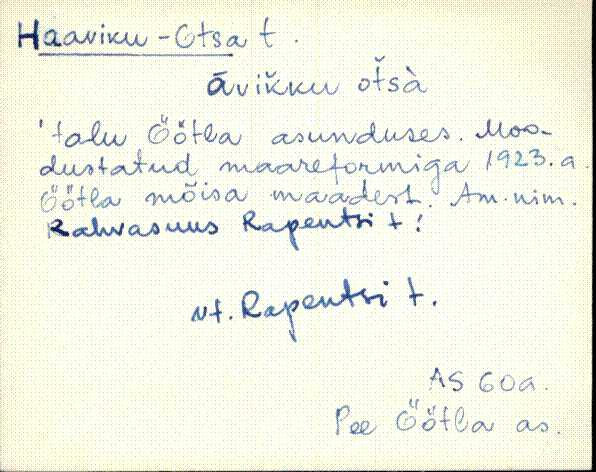 Haaviku-Otsa t.
āvikku otsà
'talu Öötla asunduses. Moo-
dustatud maareformiga 1923. a.
Öötla mõisa maadest. Am. nim.
Rahvasuus Rapentsi t!
vt. Rapentsi t.
AS 60a.
Pee Öötla as.